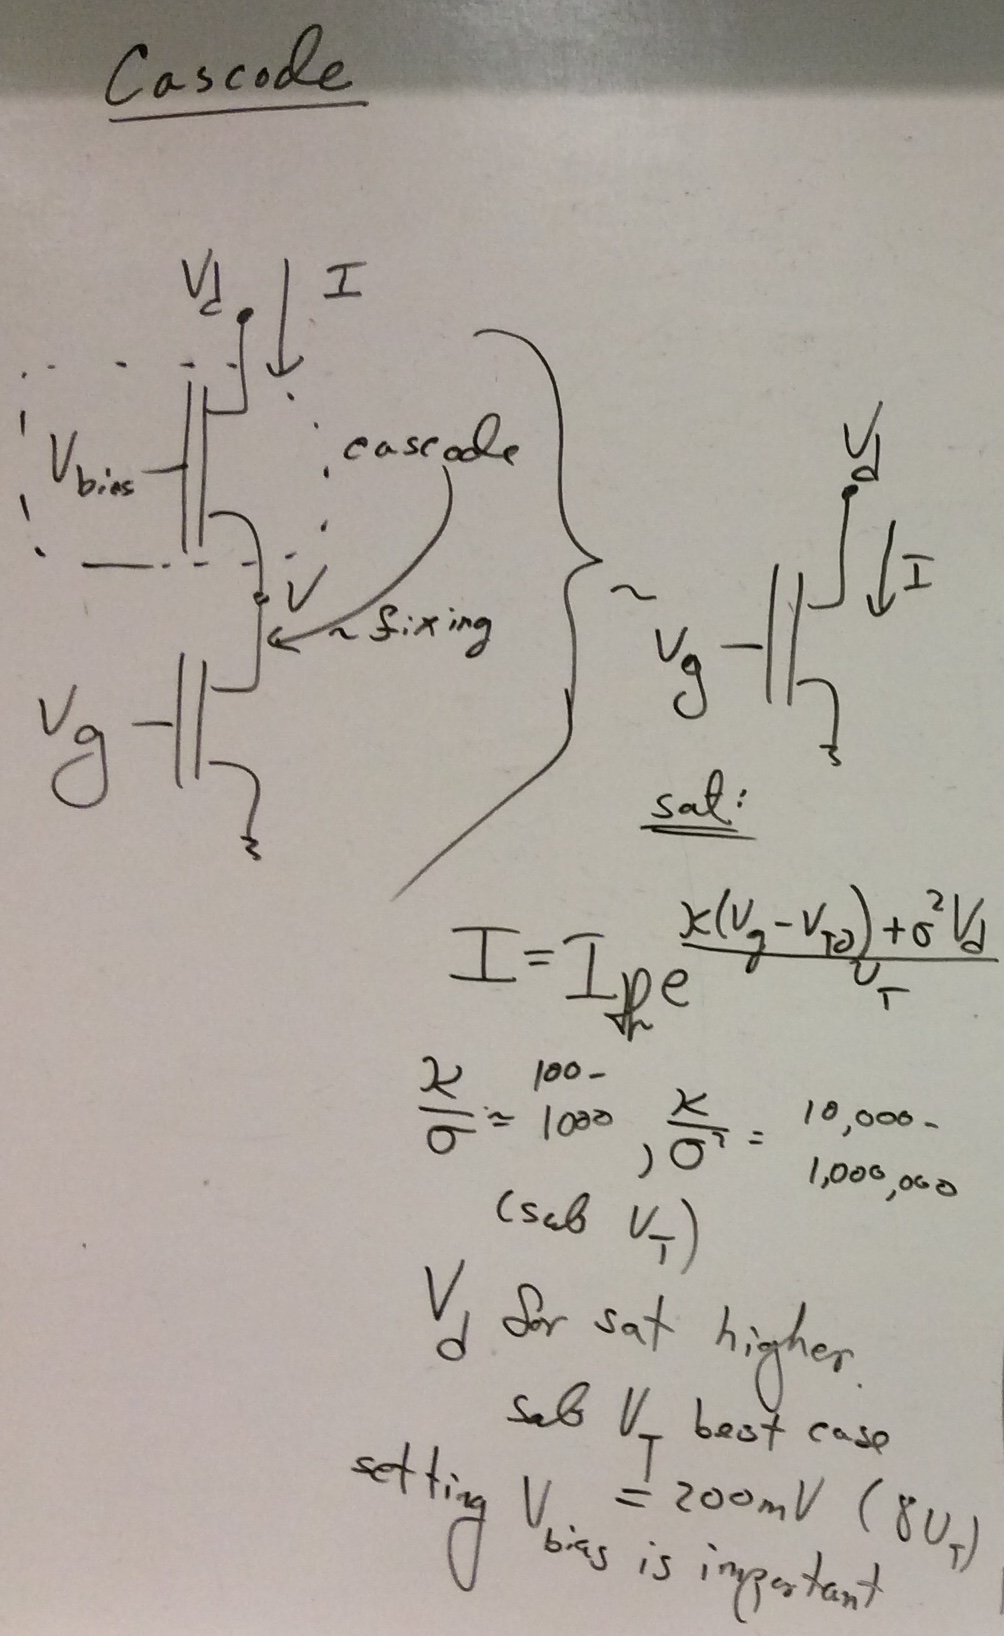 Cascode
Vd I
Vbias
cascode
V
~ fixing
Vg
~
Vd
I
Vg
sat:
I = I e^(κ(Vg - VT0) + σ²Vd)/UT
κ/σ ≈ 100-1000, κ/σ² = 10,000-1,000,000
(sub VT)
Vd for sat higher.
sub VT best case
= 200mV (8UT)
setting Vbias is important